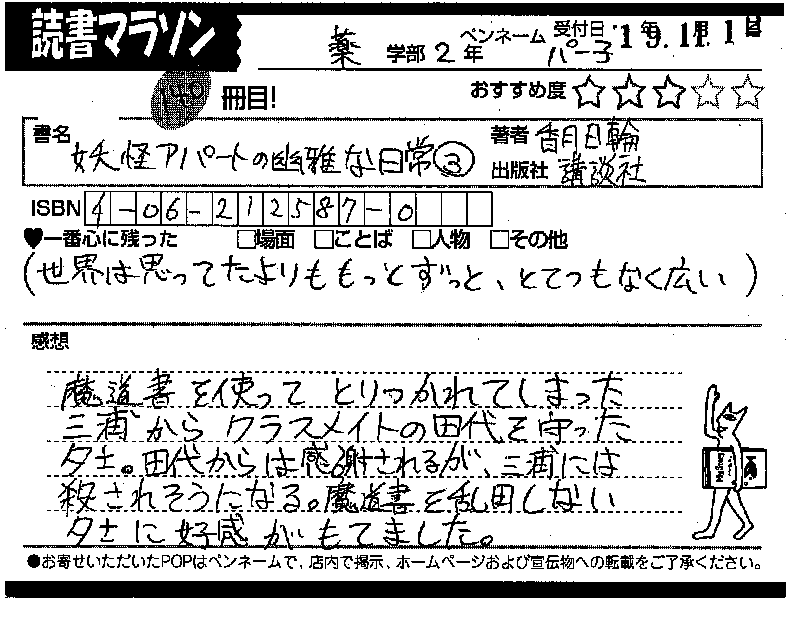 読書マラソン
薬 学部 2 年 ペンネーム パー子 受付日 '19.11.1
140 冊目! おすすめ度 ☆☆☆☆☆
書名 妖怪アパートの幽雅な日常③ 著者 香月日輪
出版社 講談社
ISBN 4-06-212587-0
♥一番心に残った □場面 □ことば □人物 □その他
(世界は思ってたよりももっとずっと、とてつもなく広い)
感想
魔道書を使って とりつかれてしまった
三浦から クラスメイトの田代を守った
夕士。田代からは感謝されるが、三浦には
殺されそうになる。魔道書を乱用しない
夕士に好感がもてました。
●お寄せいただいたPOPはペンネームで、店内で掲示、ホームページおよび宣伝物への転載をご了承ください。